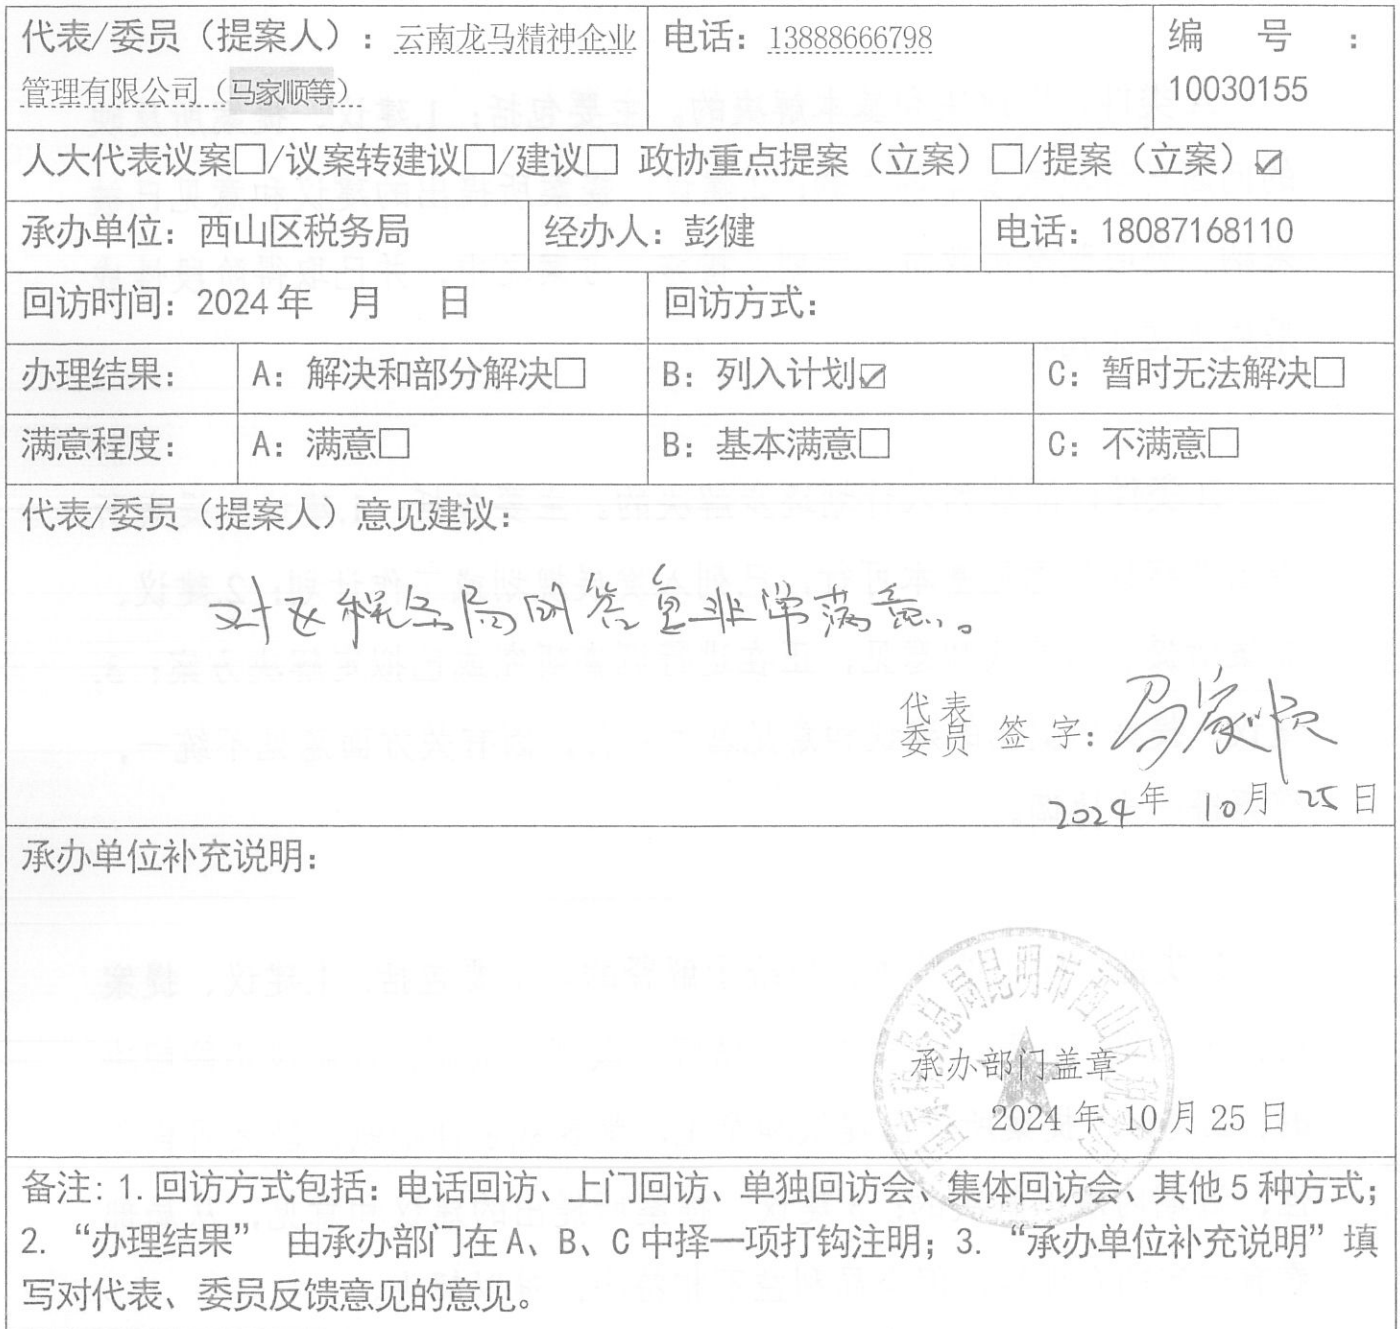 代表/委员（提案人）：云南龙马精神企业
管理有限公司（马家顺等）
电话：13888666798
编 号 ：
10030155
人大代表议案□/议案转建议□/建议□ 政协重点提案（立案）□/提案（立案）☑
承办单位：西山区税务局 经办人：彭健 电话：18087168110
回访时间：2024年 月 日 回访方式：
办理结果： A：解决和部分解决□ B：列入计划☑ C：暂时无法解决□
满意程度： A：满意□ B：基本满意□ C：不满意□
代表/委员（提案人）意见建议：
对区税务局的答复非常满意。
代表
委员 签 字：马家顺
2024年 10月 25日
承办单位补充说明：
国家税务总局昆明市西山区税务局
承办部门盖章
2024年 10月25日
备注：1.回访方式包括：电话回访、上门回访、单独回访会、集体回访会、其他5种方式；
2. “办理结果” 由承办部门在A、B、C中择一项打钩注明；3. “承办单位补充说明”填
写对代表、委员反馈意见的意见。